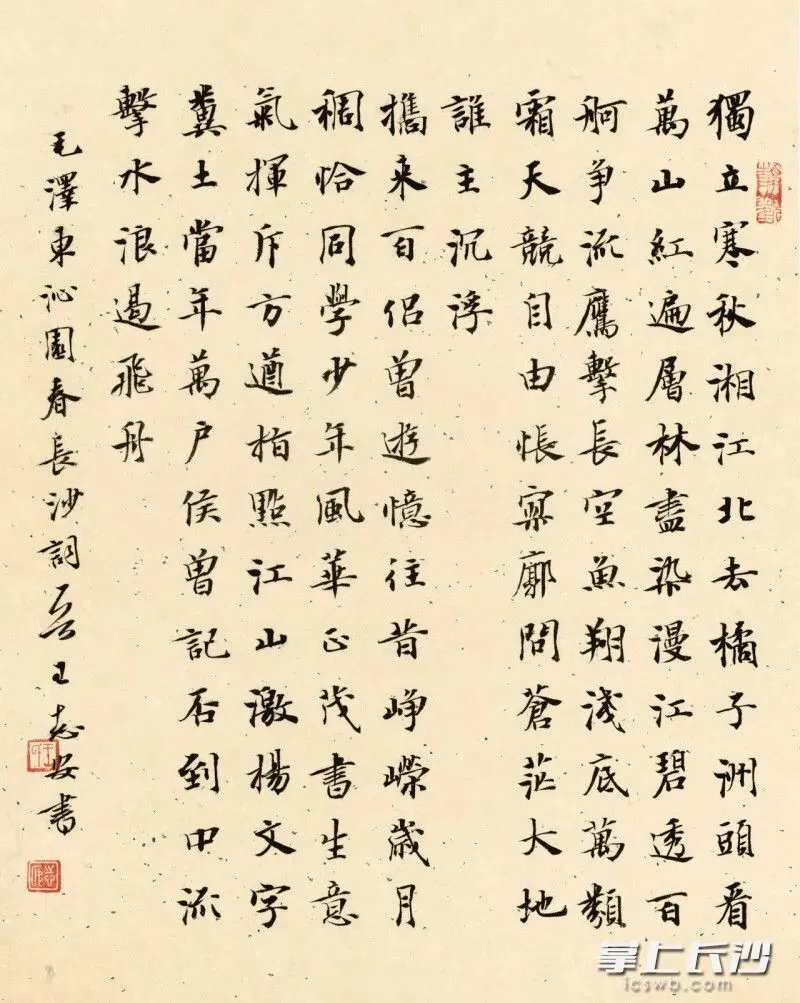 獨立寒秋湘江北去橘子洲頭看
萬山紅遍層林盡染漫江碧透百
舸争流鷹擊長空魚翔淺底萬類
霜天競自由悵寥廓問蒼茫大地
誰主沉浮
攜来百侣曾遊憶往昔崢嶸歲月
稠恰同學少年風華正茂書生意
氣揮斥方遒指點江山激楊文字
糞土當年萬户侯曾記否到中流
擊水浪遏飛舟
毛澤東沁園春長沙詞王志安書
掌上长沙
icswb.com